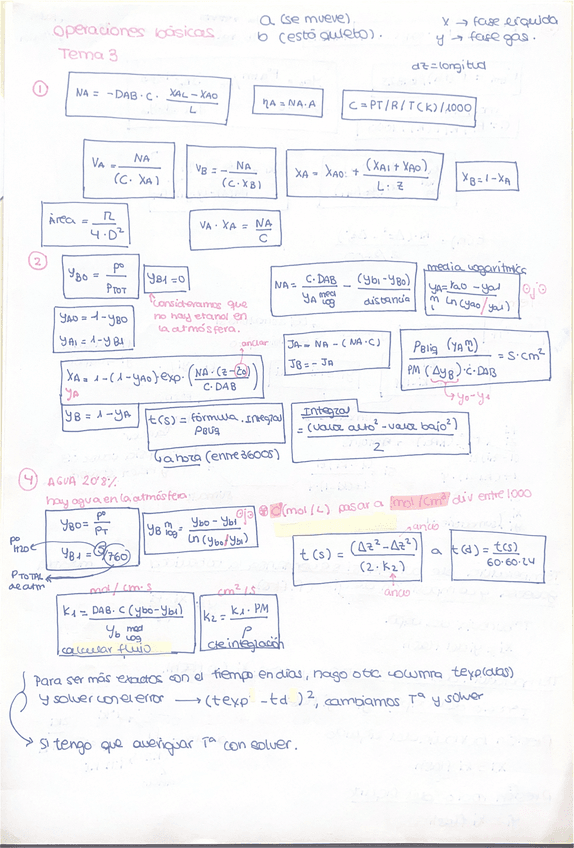 Operaciones básicas
a (se mueve)
b (está quieto).
x → fase líquida
y → fase gas.
Tema 3
dz = longitud
① NA = -DAB · C · (XAL - XA0)/L
nA = NA · A
C = PT/R/T(K)/1000
VA = NA/(C · XA)
VB = - NA/(C · XB)
XA = XA0 + (XA1 + XA0)/(L · z)
XB = 1 - XA
Área = π/(4 · D²)
VA · XA = NA/C
② yB0 = Pº/PTOT
yB1 = 0
consideramos que no hay etanol en la atmósfera.
NA = (C · DAB)/(yA med log) - (yb1 - yB0)/distancia
media logarítmica
yA m l = (ya0 - ya1)/(ln (ya0/ya1))
yA0 = 1 - yB0
yA1 = 1 - yB1
JA = NA - (NA · C)
JB = - JA
anclar
(PBliq (yA m l))/(PM (ΔyB) · C · DAB) = s · cm²
y0 - y1
XA = 1 - (1 - yA0) · exp · ((NA · (z - z0))/(C · DAB))
yA
yB = 1 - yA
t(s) = fórmula · integral PBliq
a hora (entre 3600s)
Integral
= (valor alto² - valor bajo²)/2
④ AGUA 20'8%
hay agua en la atmósfera
yB0 = Pº/PT
yB1 = 5/760
Pº H2O
P TOTAL de atm
yB m log = (yb0 - yb1)/(ln (yb0/yb1))
C (mol/L) pasar a mol/cm³ div entre 1000
t(s) = (Δz² - Δz²)/(2 · K2)
ancla
a
t(d) = t(s)/(60 · 60 · 24)
mol/cm·s
K1 = (DAB · C (yb0 - yb1))/(yb med log)
calcular flujo
cm²/s
K2 = (K1 · PM)/ρ
cte integración
Para ser más exactos con el tiempo en días, hago otra columna texp(días)
y solver con el error → (texp - td)², cambiamos Tª y solver
→ Si tengo que averiguar Tª con solver.